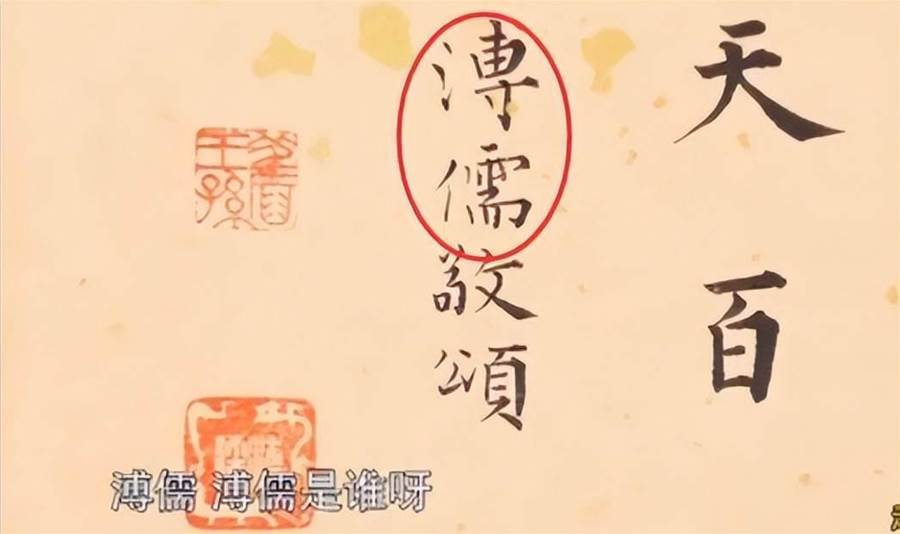 天百
溥儒敬頌
舊王孫
溥儒 溥儒是谁呀